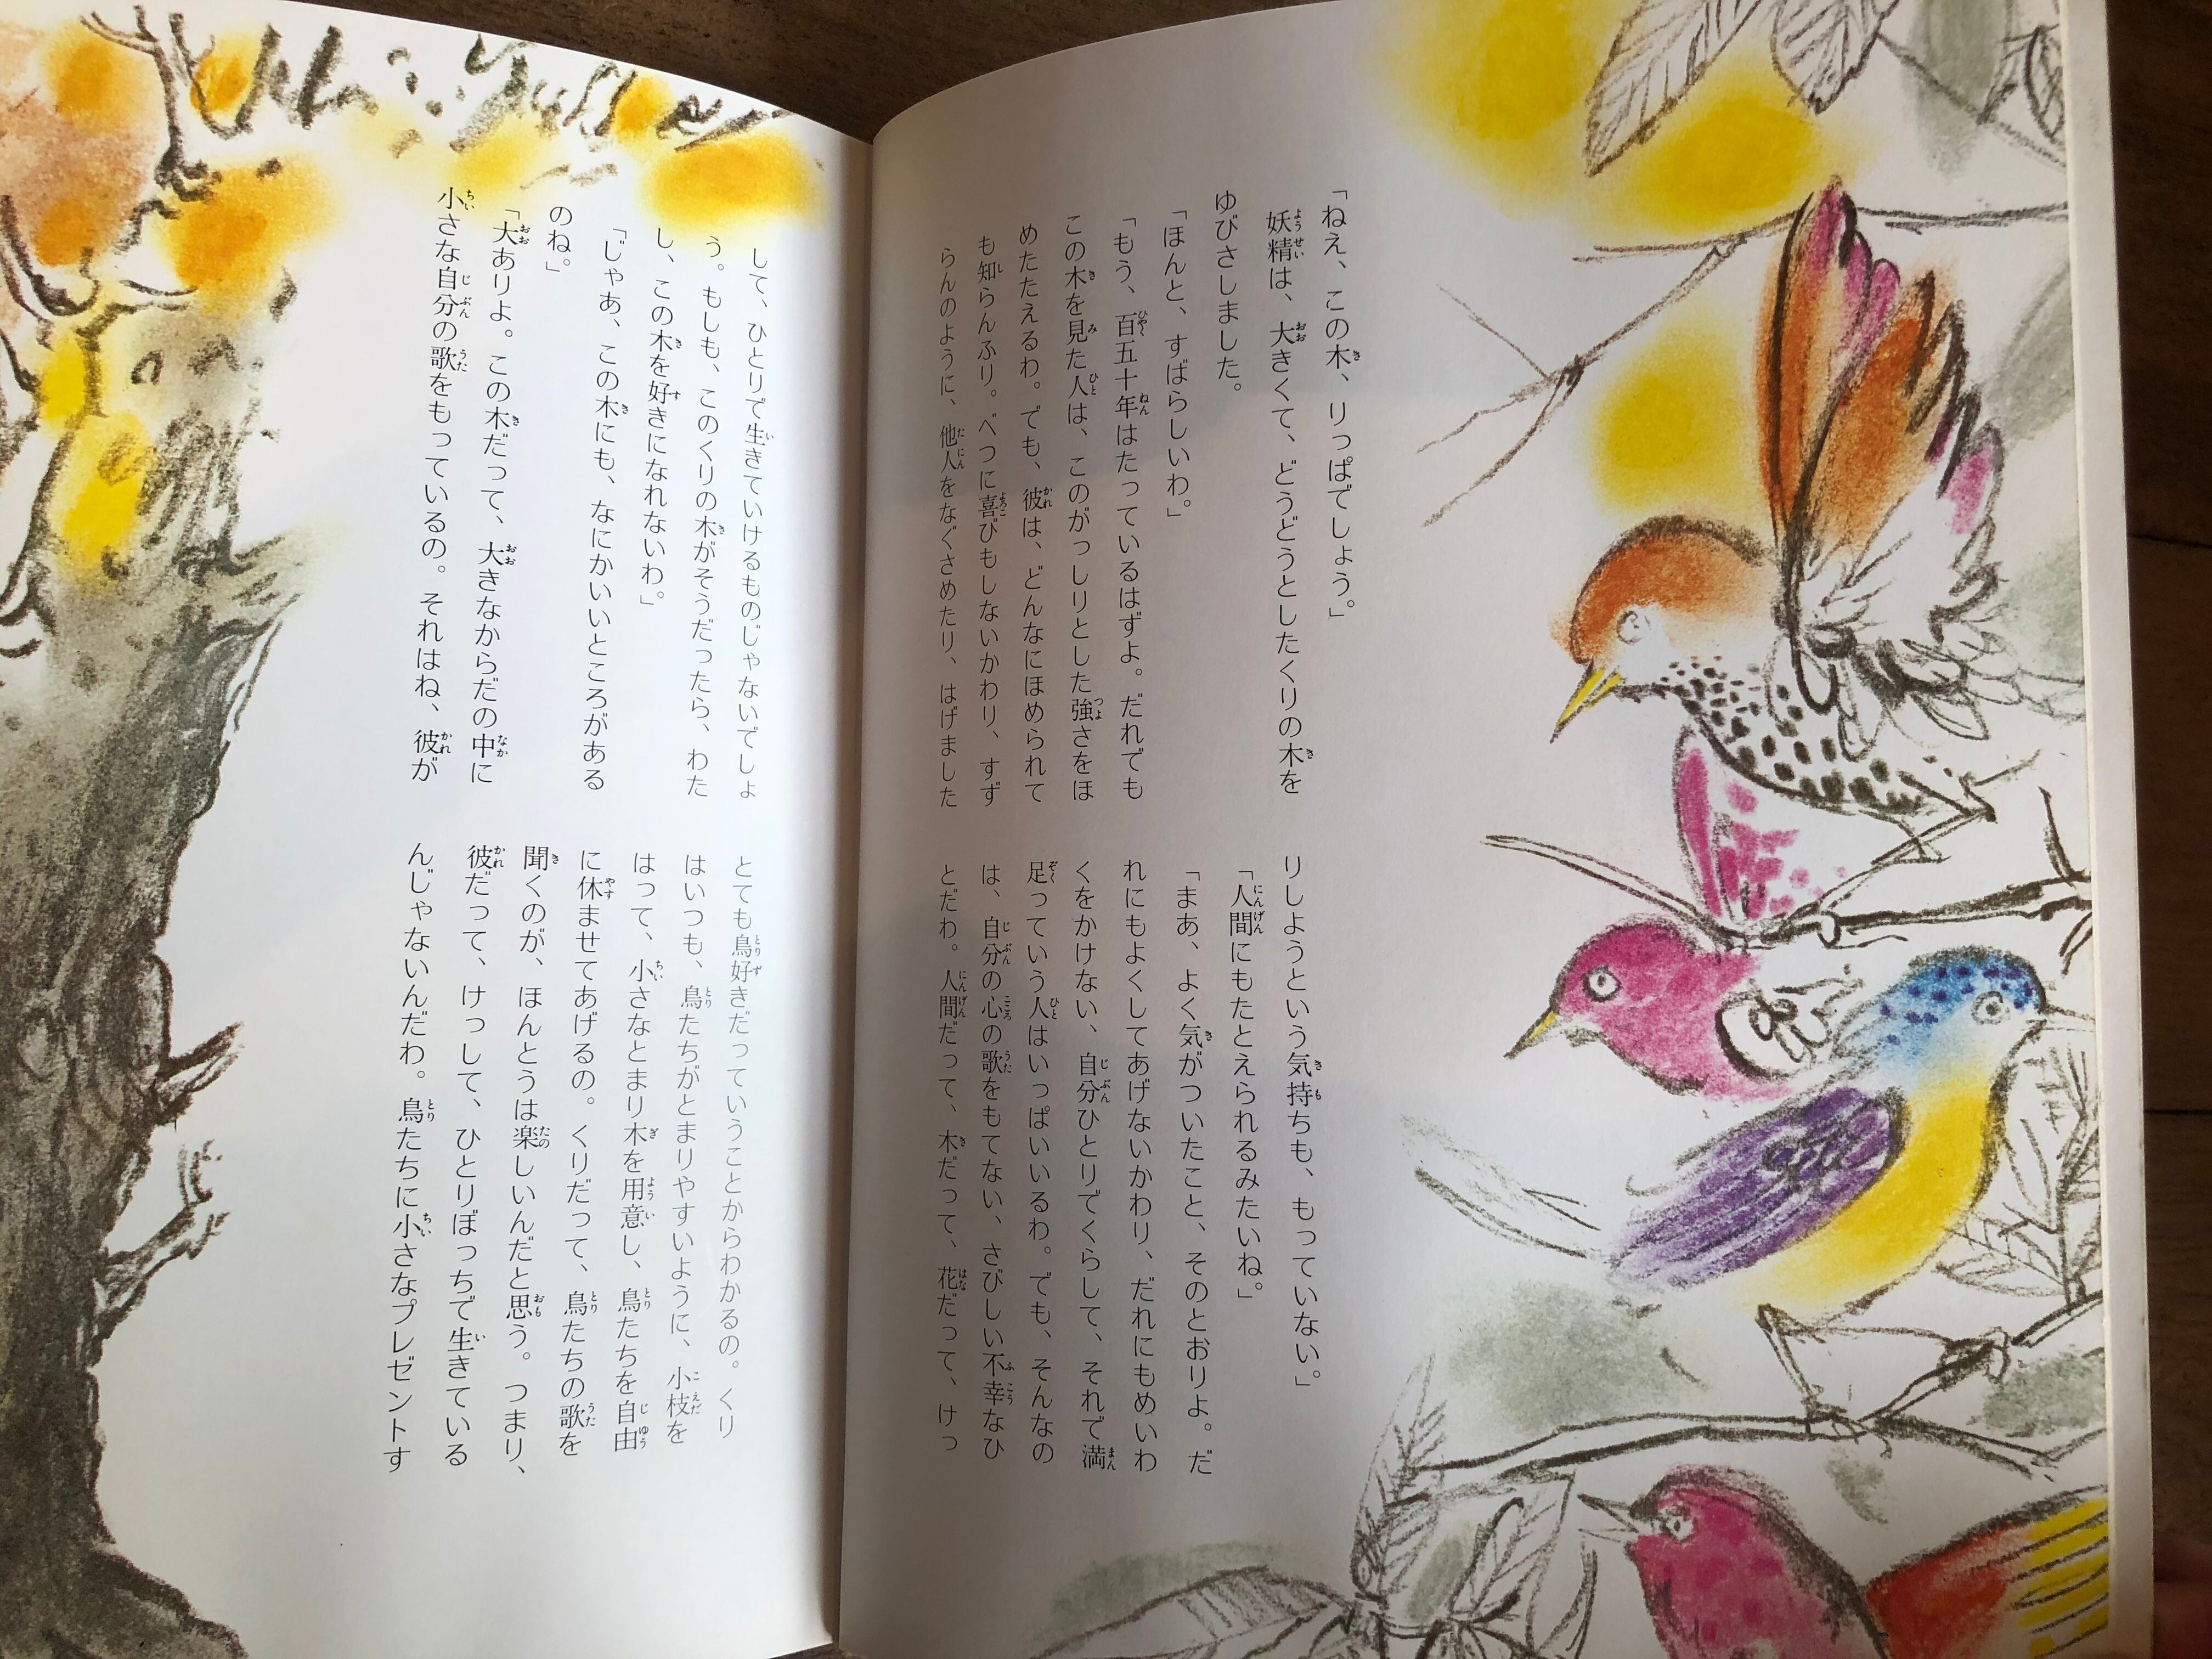 「ねえ、この木、りっぱでしょう。」
妖精は、大きくて、どうどうとしたくりの木を
ゆびさしました。
「ほんと、すばらしいわ。」
「もう、百五十年はたっているはずよ。だれでも
この木を見た人は、このがっしりとした強さをほ
めたたえるわ。でも、彼は、どんなにほめられて
も知らんふり。べつに喜びもしないかわり、すず
らんのように、他人をなぐさめたり、はげました
りしようという気持ちも、もっていない。」
「人間にもたとえられるみたいね。」
「まあ、よく気がついたこと、そのとおりよ。だ
れにもよくしてあげないかわり、だれにもめいわ
くをかけない、自分ひとりでくらして、それで満
足っていう人はいっぱいいるわ。でも、そんなの
は、自分の心の歌をもてない、さびしい不幸なひ
とだわ。人間だって、木だって、花だって、けっ
して、ひとりで生きていけるものじゃないでしょ
う。もしも、このくりの木がそうだったら、わた
し、この木を好きになれないわ。」
「じゃあ、この木にも、なにかいいところがある
のね。」
「大ありよ。この木だって、大きなからだの中に
小さな自分の歌をもっているの。それはね、彼が
とても鳥好きだっていうことからわかるの。くり
はいつも、鳥たちがとまりやすいように、小枝を
はって、小さなとまり木を用意し、鳥たちを自由
に休ませてあげるの。くりだって、鳥たちの歌を
聞くのが、ほんとうは楽しいんだと思う。つまり、
彼だって、けっして、ひとりぼっちで生きている
んじゃないんだわ。鳥たちに小さなプレゼントす